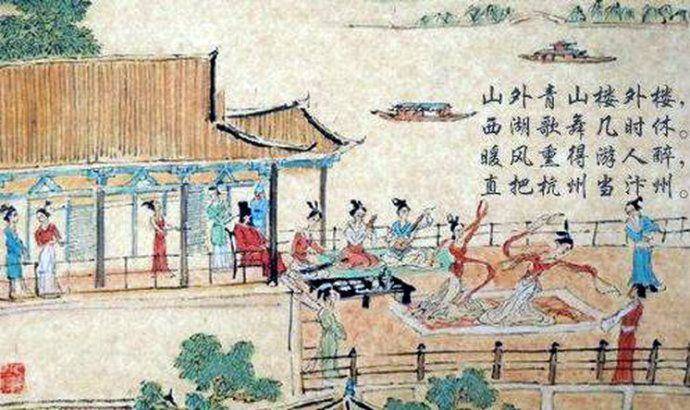 山外青山楼外楼，
西湖歌舞几时休。
暖风重得游人醉，
直把杭州当汴州。